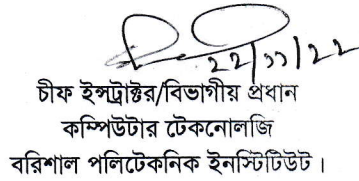 22/11/22
চীফ ইন্সট্রাক্টর/বিভাগীয় প্রধান
কম্পিউটার টেকনোলজি
বরিশাল পলিটেকনিক ইনস্টিটিউট।